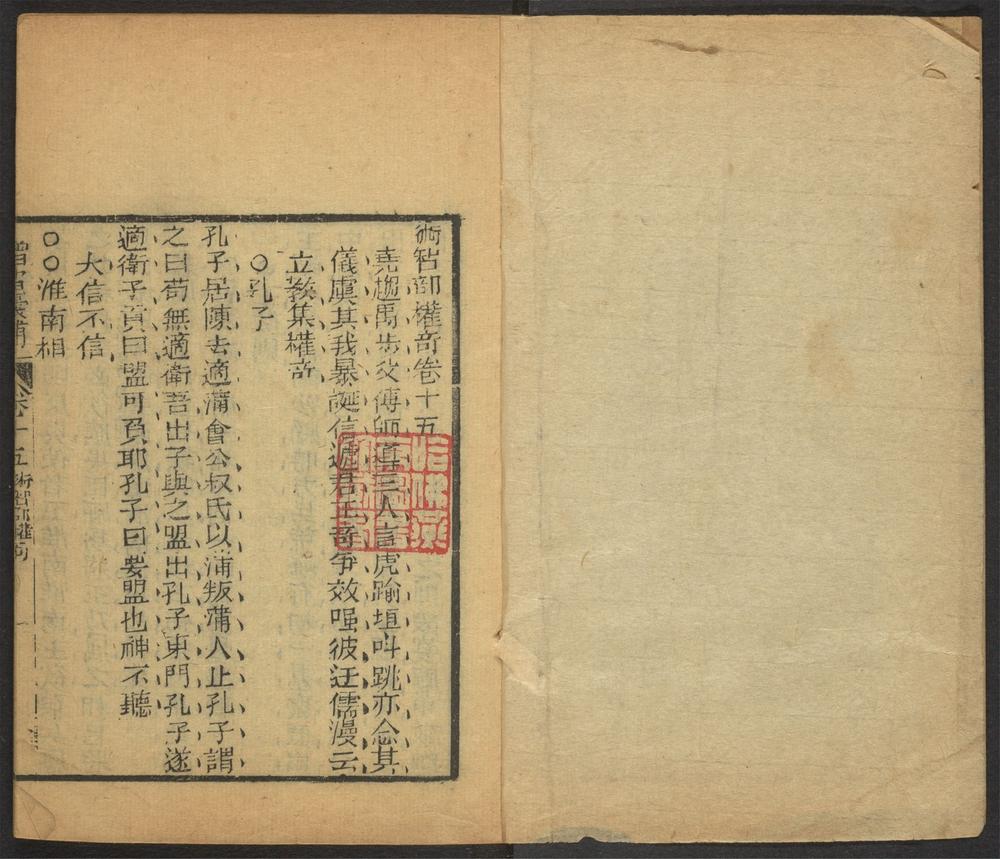 術智部權奇卷十五
堯趨禹步父傅師導三人言虎踰垣呌跳亦念其
儀虞其我暴誕信遞君正奇爭效嗤彼迂儒漫云
立教集權奇
○孔子
孔子居陳去適蒲會公叔氏以蒲叛蒲人止孔子謂
之曰苟無適衛吾出子與之盟出孔子東門孔子遂
適衛子貢曰盟可負耶孔子曰要盟也神不聽
大信不信
○○淮南相
智囊補 卷十五 術智部權奇 一
哈佛燕